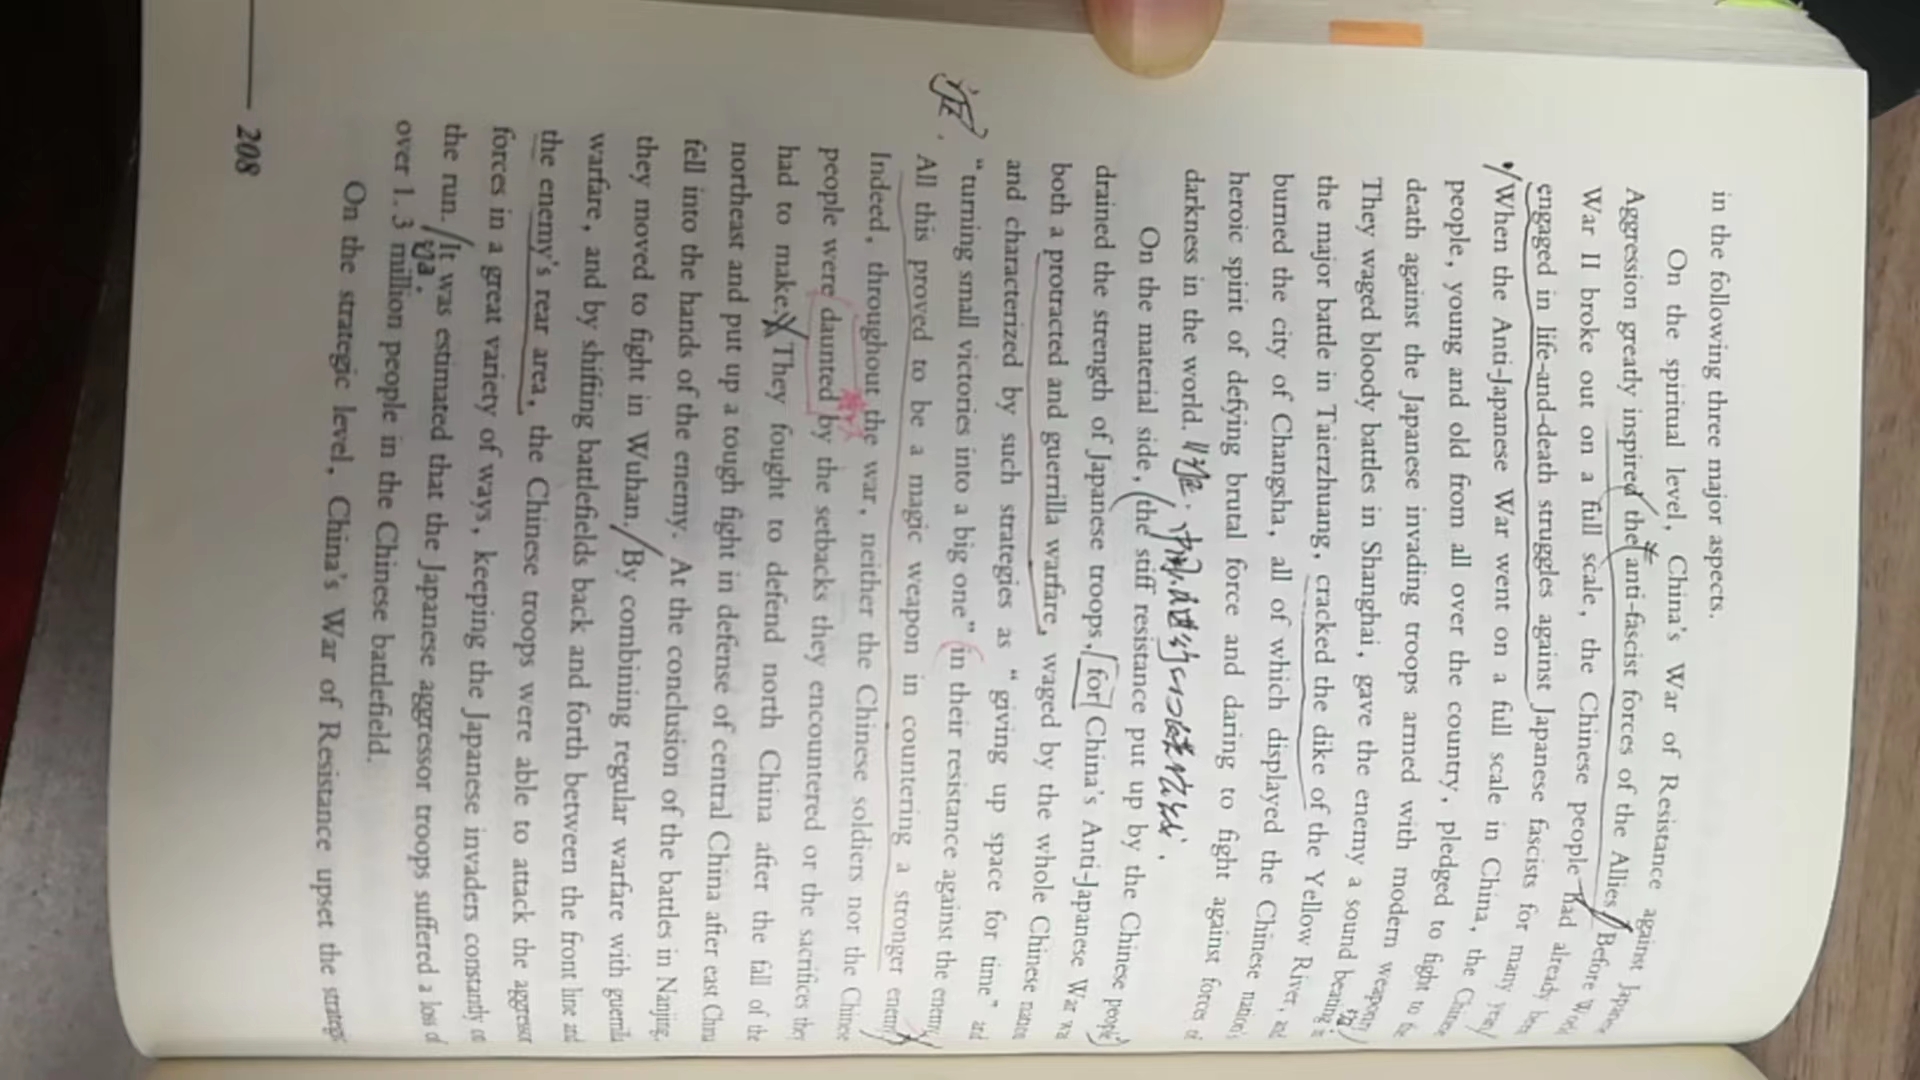 in the following three major aspects.
On the spiritual level, China's War of Resistance against Japanese
Aggression greatly inspired the anti-fascist forces of the Allies. Before World
War II broke out on a full scale, the Chinese people had already been
engaged in life-and-death struggles against Japanese fascists for many years.
When the Anti-Japanese War went on a full scale in China, the Chinese
people, young and old from all over the country, pledged to fight to the
death against the Japanese invading troops armed with modern weaponry.
They waged bloody battles in Shanghai, gave the enemy a sound beating in
the major battle in Taierzhuang, cracked the dike of the Yellow River, and
burned the city of Changsha, all of which displayed the Chinese nation's
heroic spirit of defying brutal force and daring to fight against forces of
darkness in the world.
On the material side, the stiff resistance put up by the Chinese people
drained the strength of Japanese troops, for China's Anti-Japanese War was
both a protracted and guerrilla warfare, waged by the whole Chinese nation
and characterized by such strategies as "giving up space for time" and
"turning small victories into a big one" in their resistance against the enemy.
All this proved to be a magic weapon in countering a stronger enemy.
Indeed, throughout the war, neither the Chinese soldiers nor the Chinese
people were daunted by the setbacks they encountered or the sacrifices they
had to make. They fought to defend north China after the fall of the
northeast and put up a tough fight in defense of central China after east China
fell into the hands of the enemy. At the conclusion of the battles in Nanjing,
they moved to fight in Wuhan. By combining regular warfare with guerrilla
warfare, and by shifting battlefields back and forth between the front line and
the enemy's rear area, the Chinese troops were able to attack the aggressor
forces in a great variety of ways, keeping the Japanese invaders constantly on
the run. It was estimated that the Japanese aggressor troops suffered a loss of
over 1.3 million people in the Chinese battlefield.
On the strategic level, China's War of Resistance upset the strategic
208